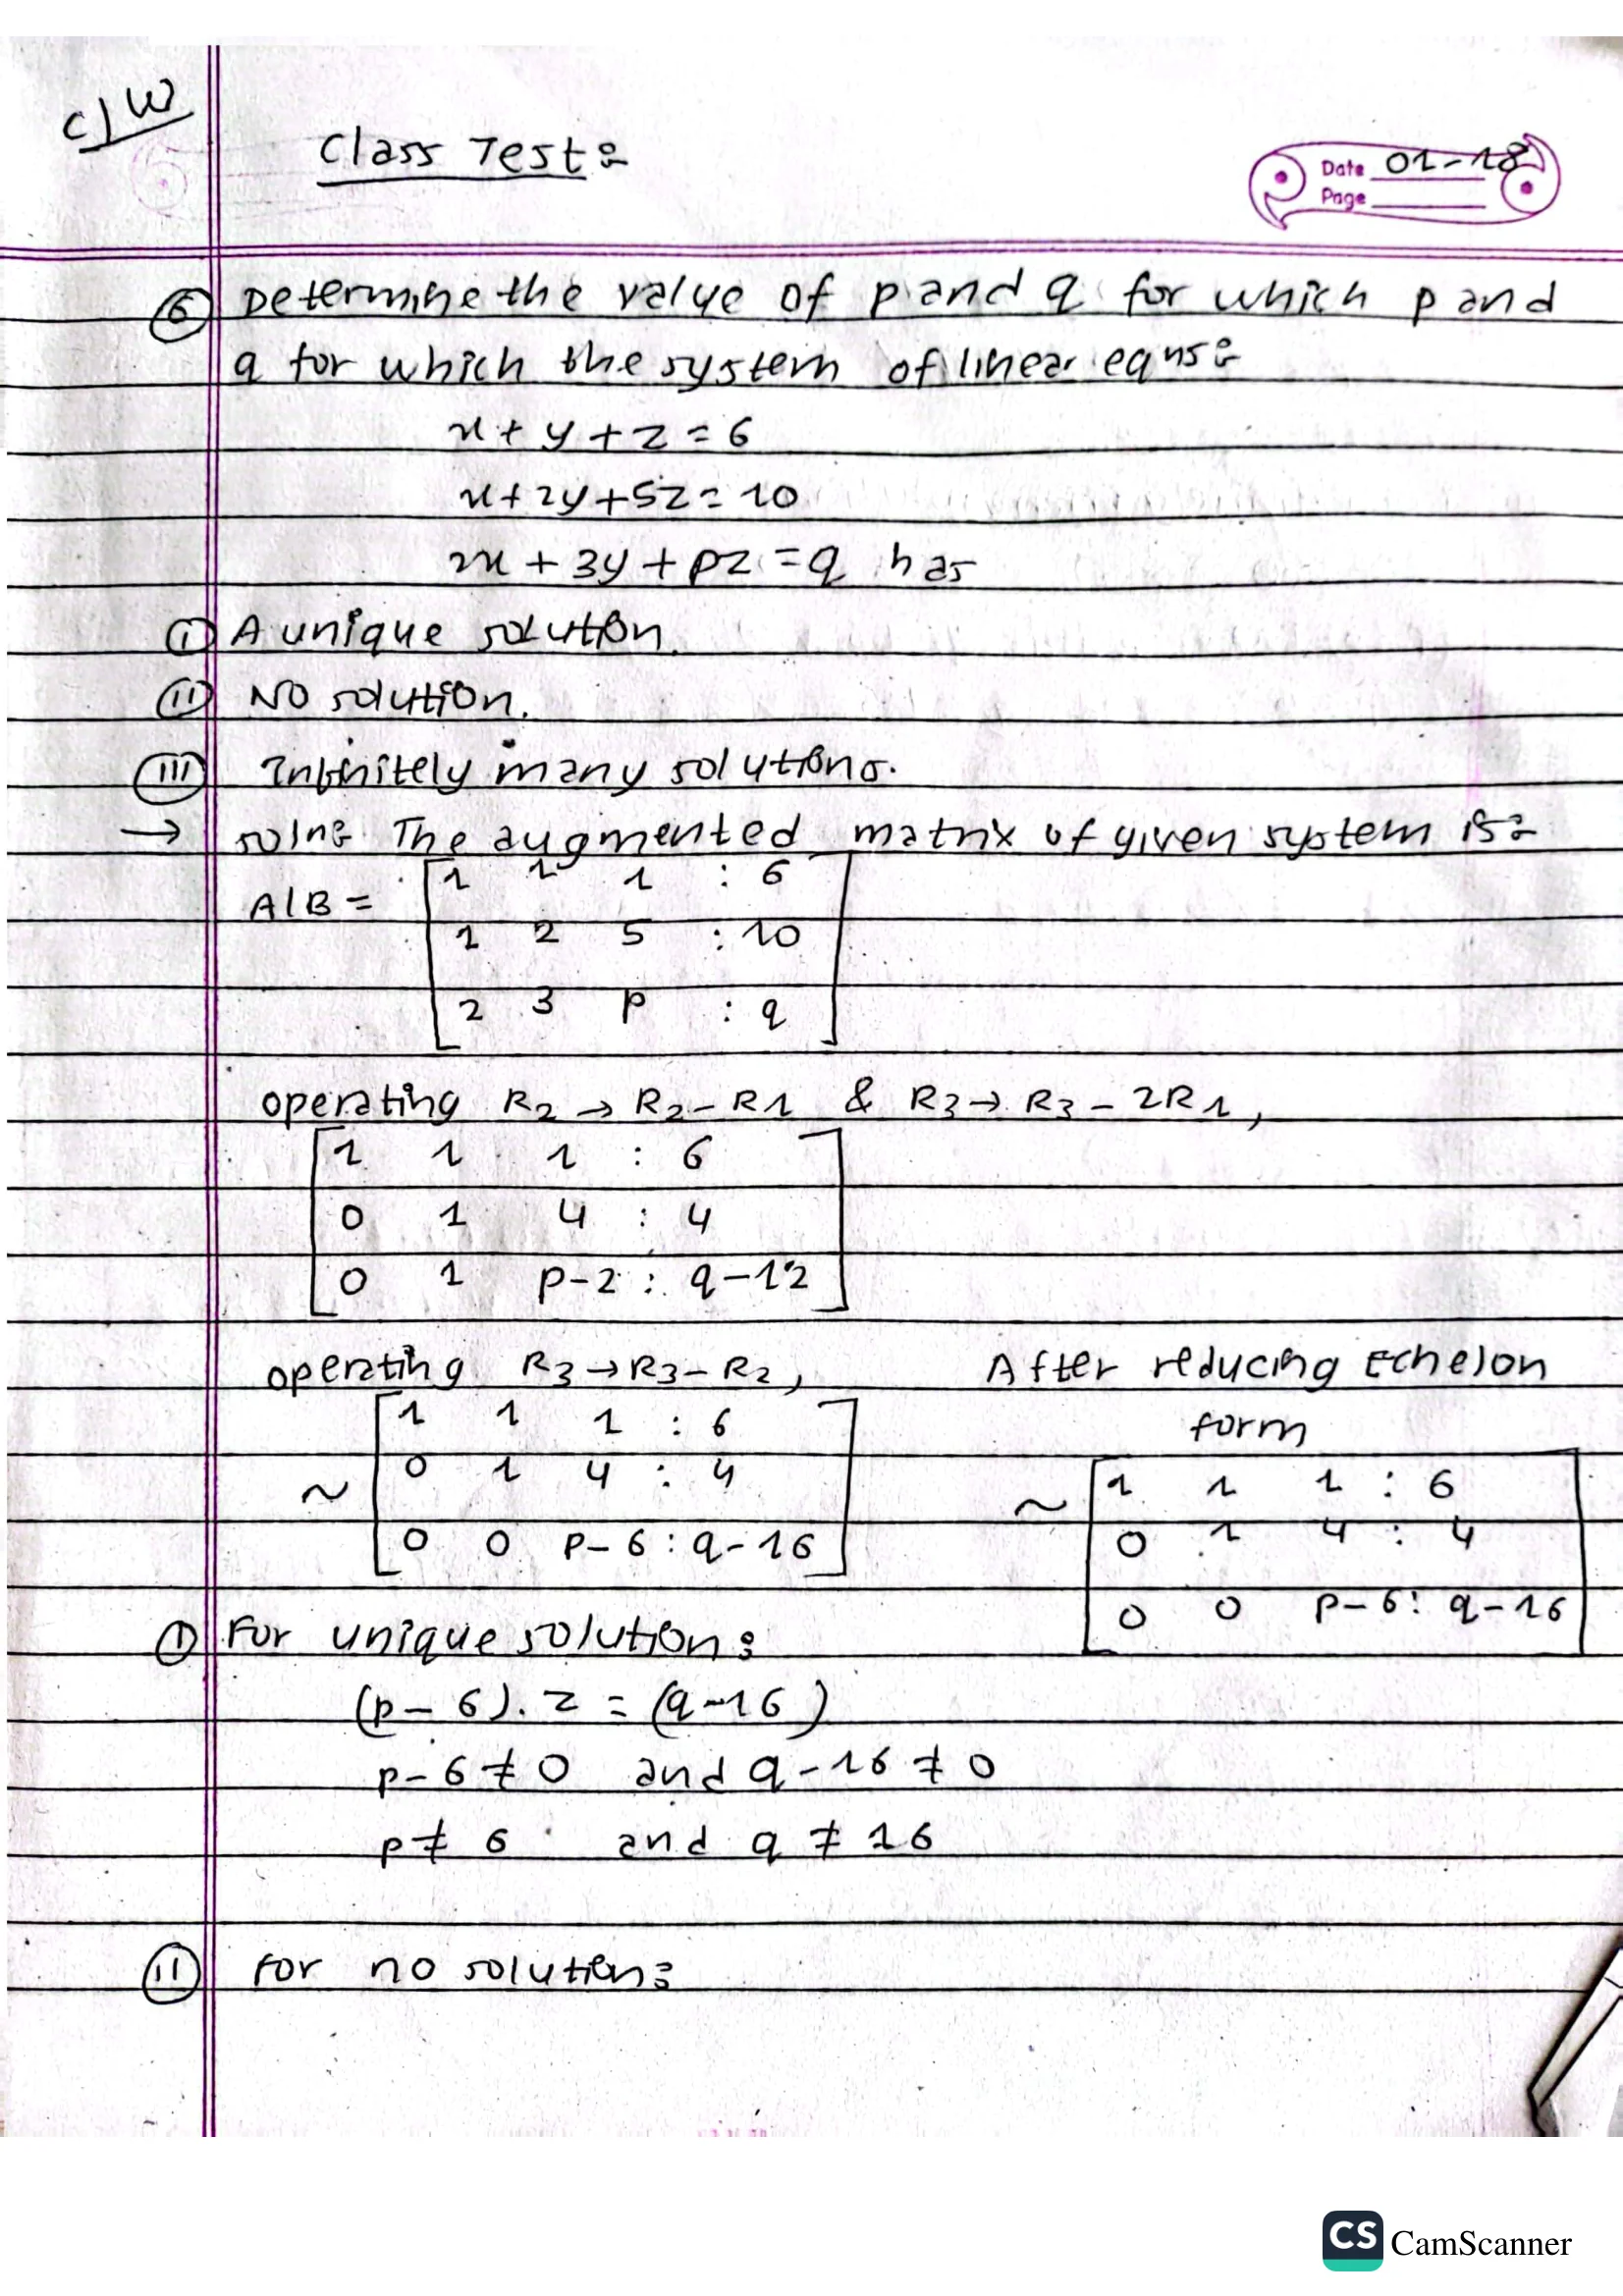 C/W
Class Test:
Date 01-18
Page
⑥ Determine the value of p and q for which p and
q for which the system of linear eqns:
x + y + z = 6
x + 2y + 5z = 10
2x + 3y + pz = q has
(i) A unique solution.
(ii) No solution.
(iii) Infinitely many solutions.
→ soln: The augmented matrix of given system is:
A|B = [1 1 1 : 6
1 2 5 : 10
2 3 p : q]
operating R2 → R2 - R1 & R3 → R3 - 2R1,
[1 1 1 : 6
0 1 4 : 4
0 1 p-2 : q-12]
operating R3 → R3 - R2,
~ [1 1 1 : 6
0 1 4 : 4
0 0 p-6 : q-16]
After reducing Echelon
form
~ [1 1 1 : 6
0 1 4 : 4
0 0 p-6 : q-16]
(i) For unique solution:
(p-6). z = (q-16)
p-6 ≠ 0 and q-16 ≠ 0
p ≠ 6 and q ≠ 16
(ii) For no solution:
CS CamScanner